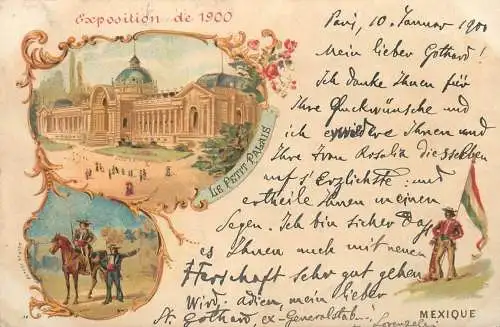 Exposition de 1900
Paris, 10. Januar 1900
Mein lieber Gothard!
Ich danke Ihnen für
Ihre Glückwünsche und
ich erwidere Ihnen und
Ihre Frau Rosalia dieselben
auf's Erzlichste und
ertheile Ihnen meinen
Segen. Ich bin sicher daß
es Ihnen auch mit neuen
Herschaft sehr gut gehen
Wird: adien, mein lieber
St. Gothard, ex-Generalstab-!
LE PETIT PALAIS
MEXIQUE